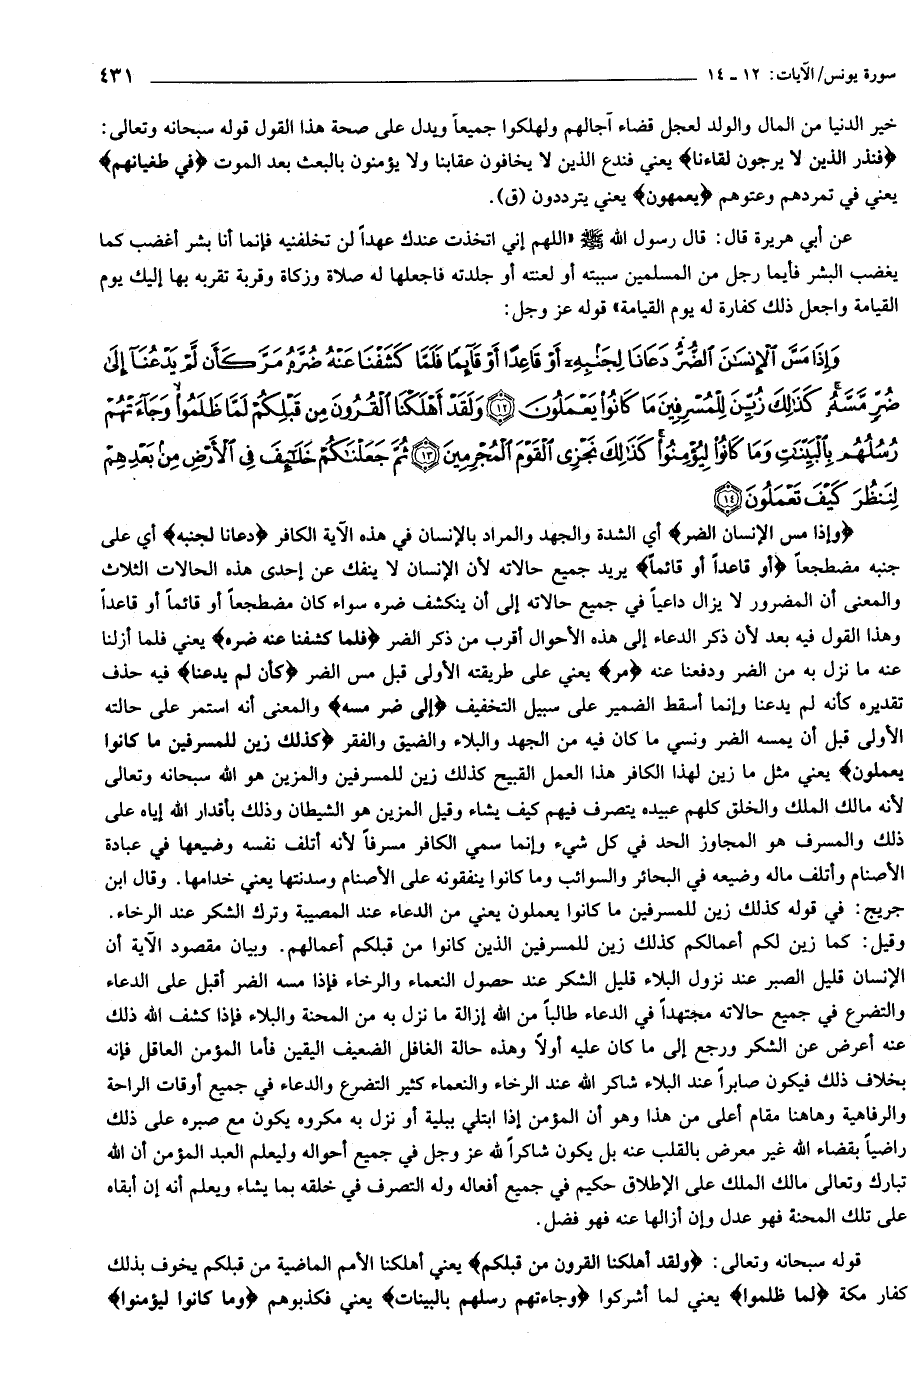 سورة يونس/ الآيات: ١٢ ـ ١٤ ٤٣١
خير الدنيا من المال والولد لعجل قضاء آجالهم ولهلكوا جميعاً ويدل على صحة هذا القول قوله سبحانه وتعالى:
﴿فنذر الذين لا يرجون لقاءنا﴾ يعني فندع الذين لا يخافون عقابنا ولا يؤمنون بالبعث بعد الموت ﴿في طغيانهم﴾
يعني في تمردهم وعتوهم ﴿يعمهون﴾ يعني يترددون (ق).
عن أبي هريرة قال: قال رسول الله ﷺ «اللهم إني اتخذت عندك عهداً لن تخلفنيه فإنما أنا بشر أغضب كما
يغضب البشر فأيما رجل من المسلمين سببته أو لعنته أو جلدته فاجعلها له صلاة وزكاة وقربة تقربه بها إليك يوم
القيامة واجعل ذلك كفارة له يوم القيامة» قوله عز وجل:
وَإِذَا مَسَّ ٱلْإِنسَٰنَ ٱلضُّرُّ دَعَانَا لِجَنۢبِهِۦٓ أَوْ قَاعِدًا أَوْ قَآئِمًا فَلَمَّا كَشَفْنَا عَنْهُ ضُرَّهُۥ مَرَّ كَأَن لَّمْ يَدْعُنَآ إِلَىٰ
ضُرٍّ مَّسَّهُۥ كَذَٰلِكَ زُيِّنَ لِلْمُسْرِفِينَ مَا كَانُوا۟ يَعْمَلُونَ ﴿١٢﴾ وَلَقَدْ أَهْلَكْنَا ٱلْقُرُونَ مِن قَبْلِكُمْ لَمَّا ظَلَمُوا۟ وَجَآءَتْهُمْ
رُسُلُهُم بِٱلْبَيِّنَٰتِ وَمَا كَانُوا۟ لِيُؤْمِنُوا۟ كَذَٰلِكَ نَجْزِى ٱلْقَوْمَ ٱلْمُجْرِمِينَ ﴿١٣﴾ ثُمَّ جَعَلْنَٰكُمْ خَلَٰٓئِفَ فِى ٱلْأَرْضِ مِنۢ بَعْدِهِمْ
لِنَنظُرَ كَيْفَ تَعْمَلُونَ ﴿١٤﴾
﴿وإذا مس الإنسان الضر﴾ أي الشدة والجهد والمراد بالإنسان في هذه الآية الكافر ﴿دعانا لجنبه﴾ أي على
جنبه مضطجعاً ﴿أو قاعداً أو قائماً﴾ يريد جميع حالاته لأن الإنسان لا ينفك عن إحدى هذه الحالات الثلاث
والمعنى أن المضرور لا يزال داعياً في جميع حالاته إلى أن ينكشف ضره سواء كان مضطجعاً أو قائماً أو قاعداً
وهذا القول فيه بعد لأن ذكر الدعاء إلى هذه الأحوال أقرب من ذكر الضر ﴿فلما كشفنا عنه ضره﴾ يعني فلما أزلنا
عنه ما نزل به من الضر ودفعنا عنه ﴿مر﴾ يعني على طريقته الأولى قبل مس الضر ﴿كأن لم يدعنا﴾ فيه حذف
تقديره كأنه لم يدعنا وإنما أسقط الضمير على سبيل التخفيف ﴿إلى ضر مسه﴾ والمعنى أنه استمر على حالته
الأولى قبل أن يمسه الضر ونسي ما كان فيه من الجهد والبلاء والضيق والفقر ﴿كذلك زين للمسرفين ما كانوا
يعملون﴾ يعني مثل ما زين لهذا الكافر هذا العمل القبيح كذلك زين للمسرفين والمزين هو الله سبحانه وتعالى
لأنه مالك الملك والخلق كلهم عبيده يتصرف فيهم كيف يشاء وقيل المزين هو الشيطان وذلك بأقدار الله إياه على
ذلك والمسرف هو المجاوز الحد في كل شيء وإنما سمي الكافر مسرفاً لأنه أتلف نفسه وضيعها في عبادة
الأصنام وأتلف ماله وضيعه في البحائر والسوائب وما كانوا ينفقونه على الأصنام وسدنتها يعني خدامها. وقال ابن
جريج: في قوله كذلك زين للمسرفين ما كانوا يعملون يعني من الدعاء عند المصيبة وترك الشكر عند الرخاء.
وقيل: كما زين لكم أعمالكم كذلك زين للمسرفين الذين كانوا من قبلكم أعمالهم. وبيان مقصود الآية أن
الإنسان قليل الصبر عند نزول البلاء قليل الشكر عند حصول النعماء والرخاء فإذا مسه الضر أقبل على الدعاء
والتضرع في جميع حالاته مجتهداً في الدعاء طالباً من الله إزالة ما نزل به من المحنة والبلاء فإذا كشف الله ذلك
عنه أعرض عن الشكر ورجع إلى ما كان عليه أولاً وهذه حالة الغافل الضعيف اليقين فأما المؤمن العاقل فإنه
بخلاف ذلك فيكون صابراً عند البلاء شاكر الله عند الرخاء والنعماء كثير التضرع والدعاء في جميع أوقات الراحة
والرفاهية وهاهنا مقام أعلى من هذا وهو أن المؤمن إذا ابتلي ببلية أو نزل به مكروه يكون مع صبره على ذلك
راضياً بقضاء الله غير معرض بالقلب عنه بل يكون شاكراً لله عز وجل في جميع أحواله وليعلم العبد المؤمن أن الله
تبارك وتعالى مالك الملك على الإطلاق حكيم في جميع أفعاله وله التصرف في خلقه بما يشاء ويعلم أنه إن أبقاه
على تلك المحنة فهو عدل وإن أزالها عنه فهو فضل.
قوله سبحانه وتعالى: ﴿ولقد أهلكنا القرون من قبلكم﴾ يعني أهلكنا الأمم الماضية من قبلكم يخوف بذلك
كفار مكة ﴿لما ظلموا﴾ يعني لما أشركوا ﴿وجاءتهم رسلهم بالبينات﴾ يعني فكذبوهم ﴿وما كانوا ليؤمنوا﴾